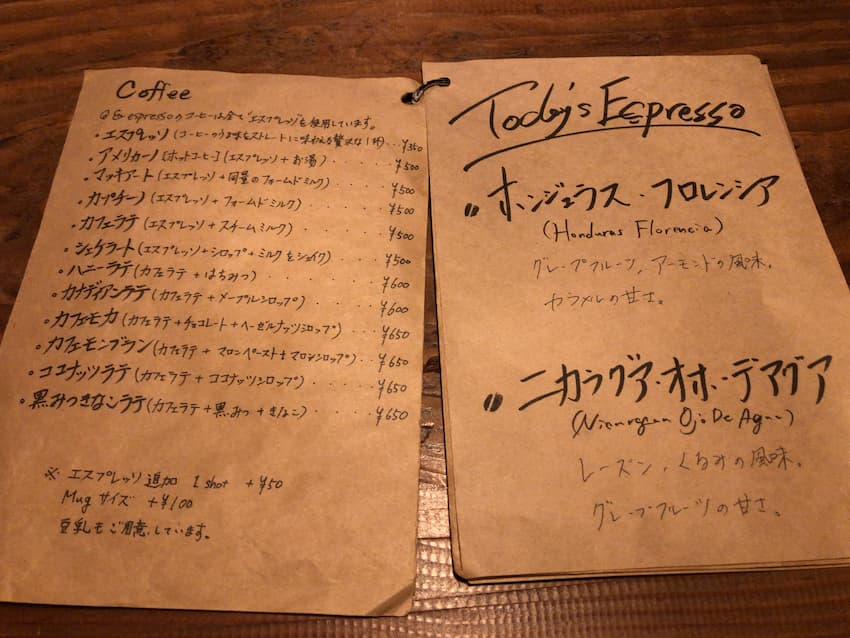 Coffee
espressoのコーヒーは全て"エスプレッソ"を使用しています。
・エスプレッソ(コーヒーのうま味をストレートに味わえる贅沢な1杯)‥¥350
・アメリカーノ[ホットコーヒー](エスプレッソ+お湯)・・・・¥500
・マッキアート(エスプレッソ+同量のフォームドミルク)・・・¥500
・カプチーノ(エスプレッソ+フォームドミルク)・・・・¥500
・カフェラテ(エスプレッソ+スチームミルク)・・・・¥500
・シェケラート(エスプレッソ+シロップ+ミルクをシェイク)・・・¥500
・ハニーラテ(カフェラテ+はちみつ)・・・・・¥600
・カナディアンラテ(カフェラテ+メープルシロップ)・・・・¥600
・カフェモカ(カフェラテ+チョコレート+ヘーゼルナッツシロップ)・・・¥650
・カフェモンブラン(カフェラテ+マロンペースト+マロンシロップ)・・¥650
・ココナッツラテ(カフェラテ+ココナッツシロップ)・・・・¥650
・黒みつきなこラテ(カフェラテ+黒みつ+きなこ)・・・・¥650
※ エスプレッソ追加 1 shot +¥50
Mug サイズ +¥100
豆乳もご用意しています。
Today's Espresso
ホンジュラス・フロレンシア
(Honduras Florencia)
グレープフルーツ、アーモンドの風味。
カラメルの甘さ。
ニカラグア・オホ・デアグア
(Nicaragua Ojo De Agua)
レーズン、くるみの風味。
グレープフルーツの甘さ。